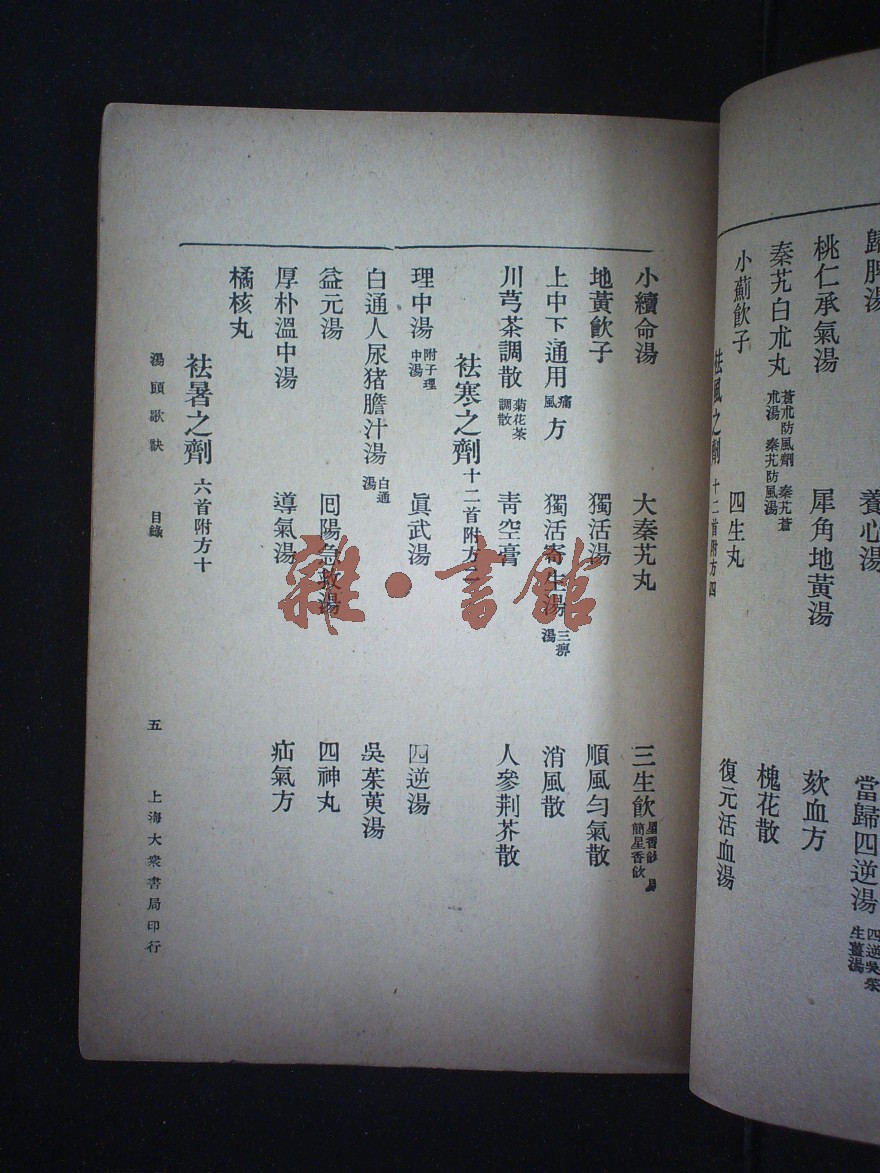 歸脾湯 養心湯 當歸四逆湯 四逆吳茱生薑湯
桃仁承氣湯 犀角地黃湯 欬血方
秦艽白朮丸 蒼朮防風劑 秦艽蒼朮湯 秦艽防風湯 槐花散
小薊飲子 四生丸 復元活血湯
祛風之劑 十二首附方四
小續命湯 大秦艽丸 三生飲 星香飲 簡星香飲
地黃飲子 獨活湯 順風勻氣散
上中下通用痛風方 獨活寄生湯 三痹湯 消風散
川芎茶調散 菊花茶調散 青空膏 人參荆芥散
祛寒之劑 十二首附方二
理中湯 附子理中湯 眞武湯 四逆湯
白通人尿猪膽汁湯 白通湯 吳茱萸湯
益元湯 回陽急救湯 四神丸
厚朴溫中湯 導氣湯 疝氣方
橘核丸
祛暑之劑 六首附方十
湯頭歌訣 目錄 五 上海大衆書局印行
雜·書館